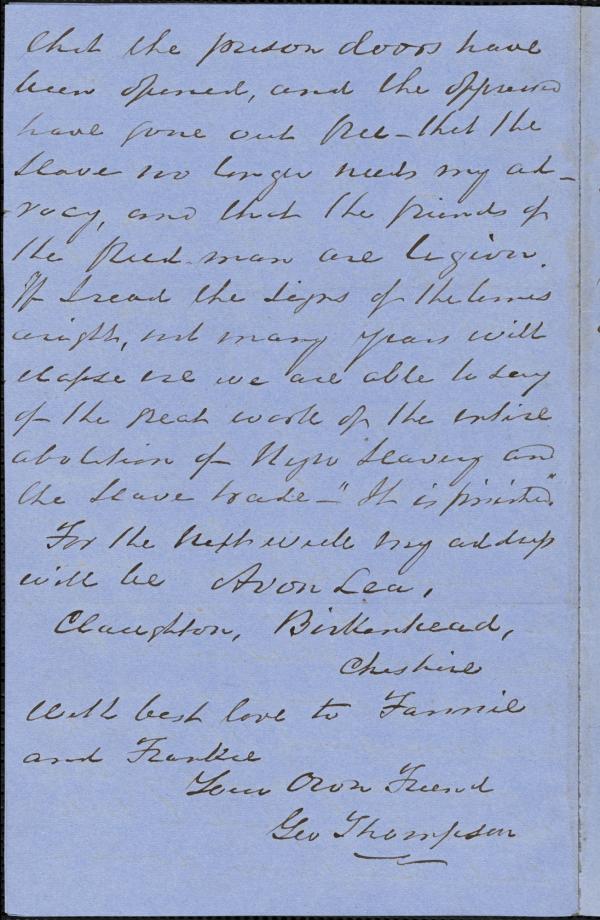 that the prison doors have
been opened, and the oppressed
have gone out free – that the
slave no longer needs my ad-
vocacy, and that the friends of
the freed-man are legion.
If I read the signs of the times
aright, not many years will
elapse ere we are able to say
of the great work of the entire
abolition of Negro Slavery and
the Slave trade – "It is finished"
For the next week my address
will be Avon Lea,
Claughton, Birkenhead,
Cheshire
With best love to Fannie
and Frankie
Your Own Friend
Geo Thompson